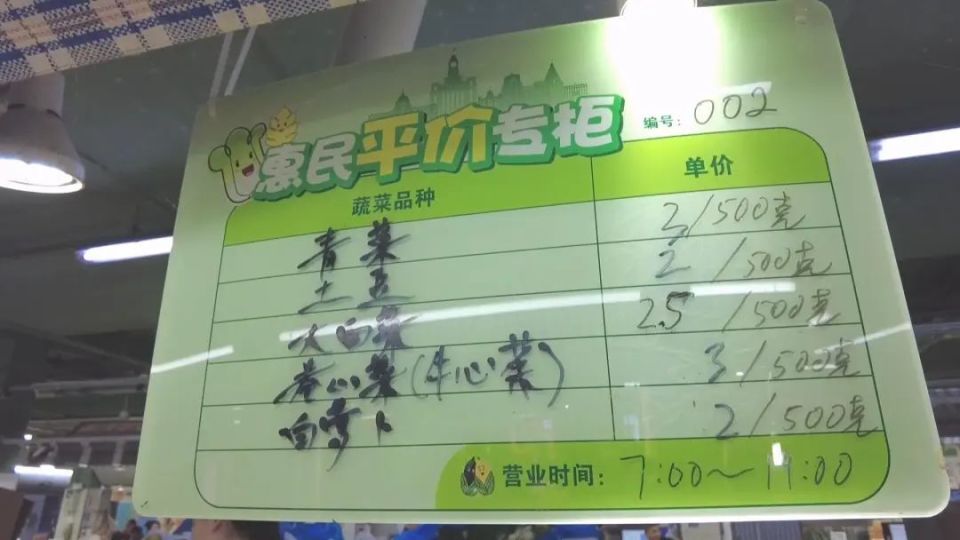 惠民平价专柜 编号: 002
蔬菜品种 单价
青菜 2/500克
土豆 2/500克
大白菜 2.5/500克
卷心菜(牛心菜) 3/500克
白萝卜 2/500克
营业时间: 7:00~19:00